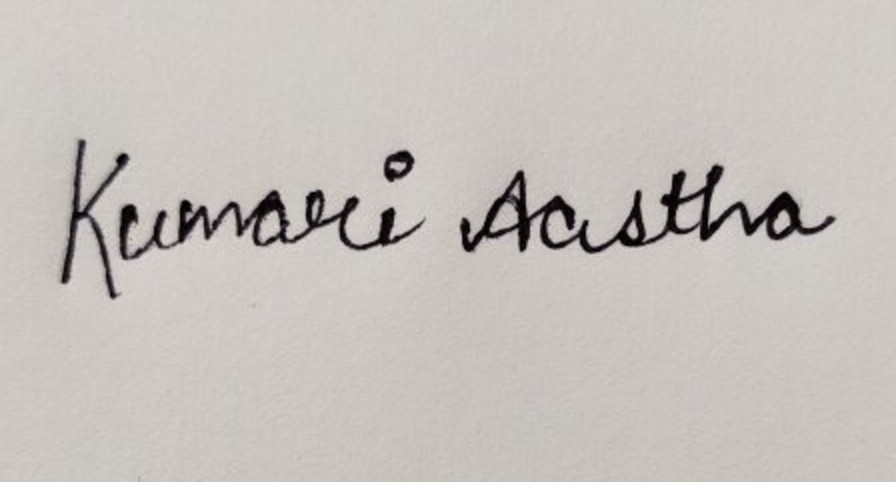 Kumari Aastha